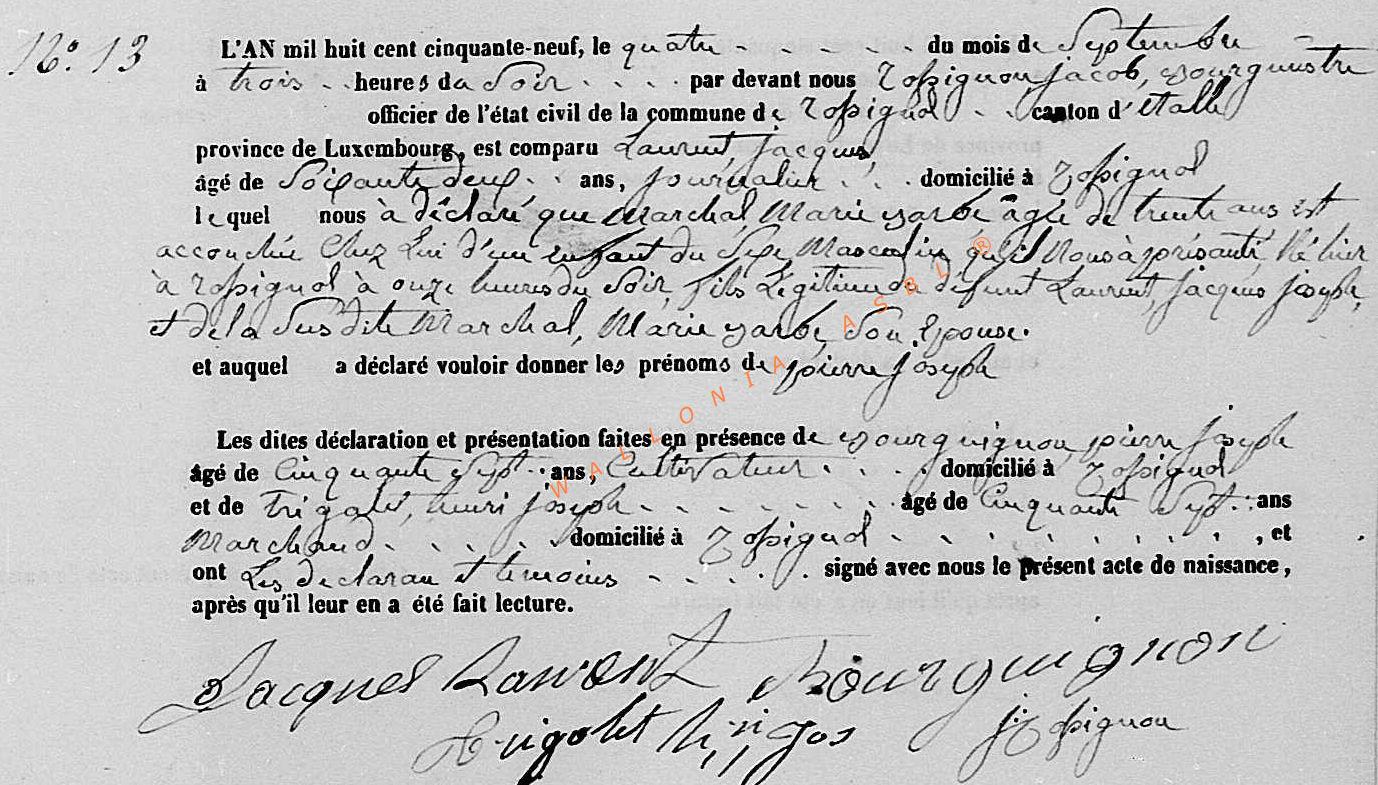 N° 13
L'AN mil huit cent cinquante-neuf, le quatre du mois de Septembre
à trois heures du Soir par devant nous Rossignon, jacob, Bourgmestre
officier de l'état civil de la commune de Rossignol canton d'étalle
province de Luxembourg, est comparu Laurent, jacques,
âgé de Soixante deux ans, journalier domicilié à Rossignol
lequel nous à déclaré que Marchal, Marie Barbe agée de trente ans est
accouchée Chez Lui d'un enfant du Sexe Masculin, qu'il Nous à présanté, Né hier
à Rossignol à onze heures du Soir, fils Légitime de défunt Laurent, jacques joseph,
et de la Susdite Marchal, Marie Barbe, Son Epouse.
et auquel a déclaré vouloir donner les prénoms de pierre joseph
Les dites déclaration et présentation faites en présence de Bourguignon, pierre joseph
âgé de Cinquante Sept ans, Cultivateur domicilié à Rossignol
et de Trigalet, henri joseph âgé de Cinquante Sept ans
Marchand domicilié à Rossignol , et
ont Les declaran et temoins signé avec nous le présent acte de naissance,
après qu'il leur en a été fait lecture.
Jacques Laurent Bourguignon
Trigalet h jos j Rossignon
WALLONIA ASBL ®